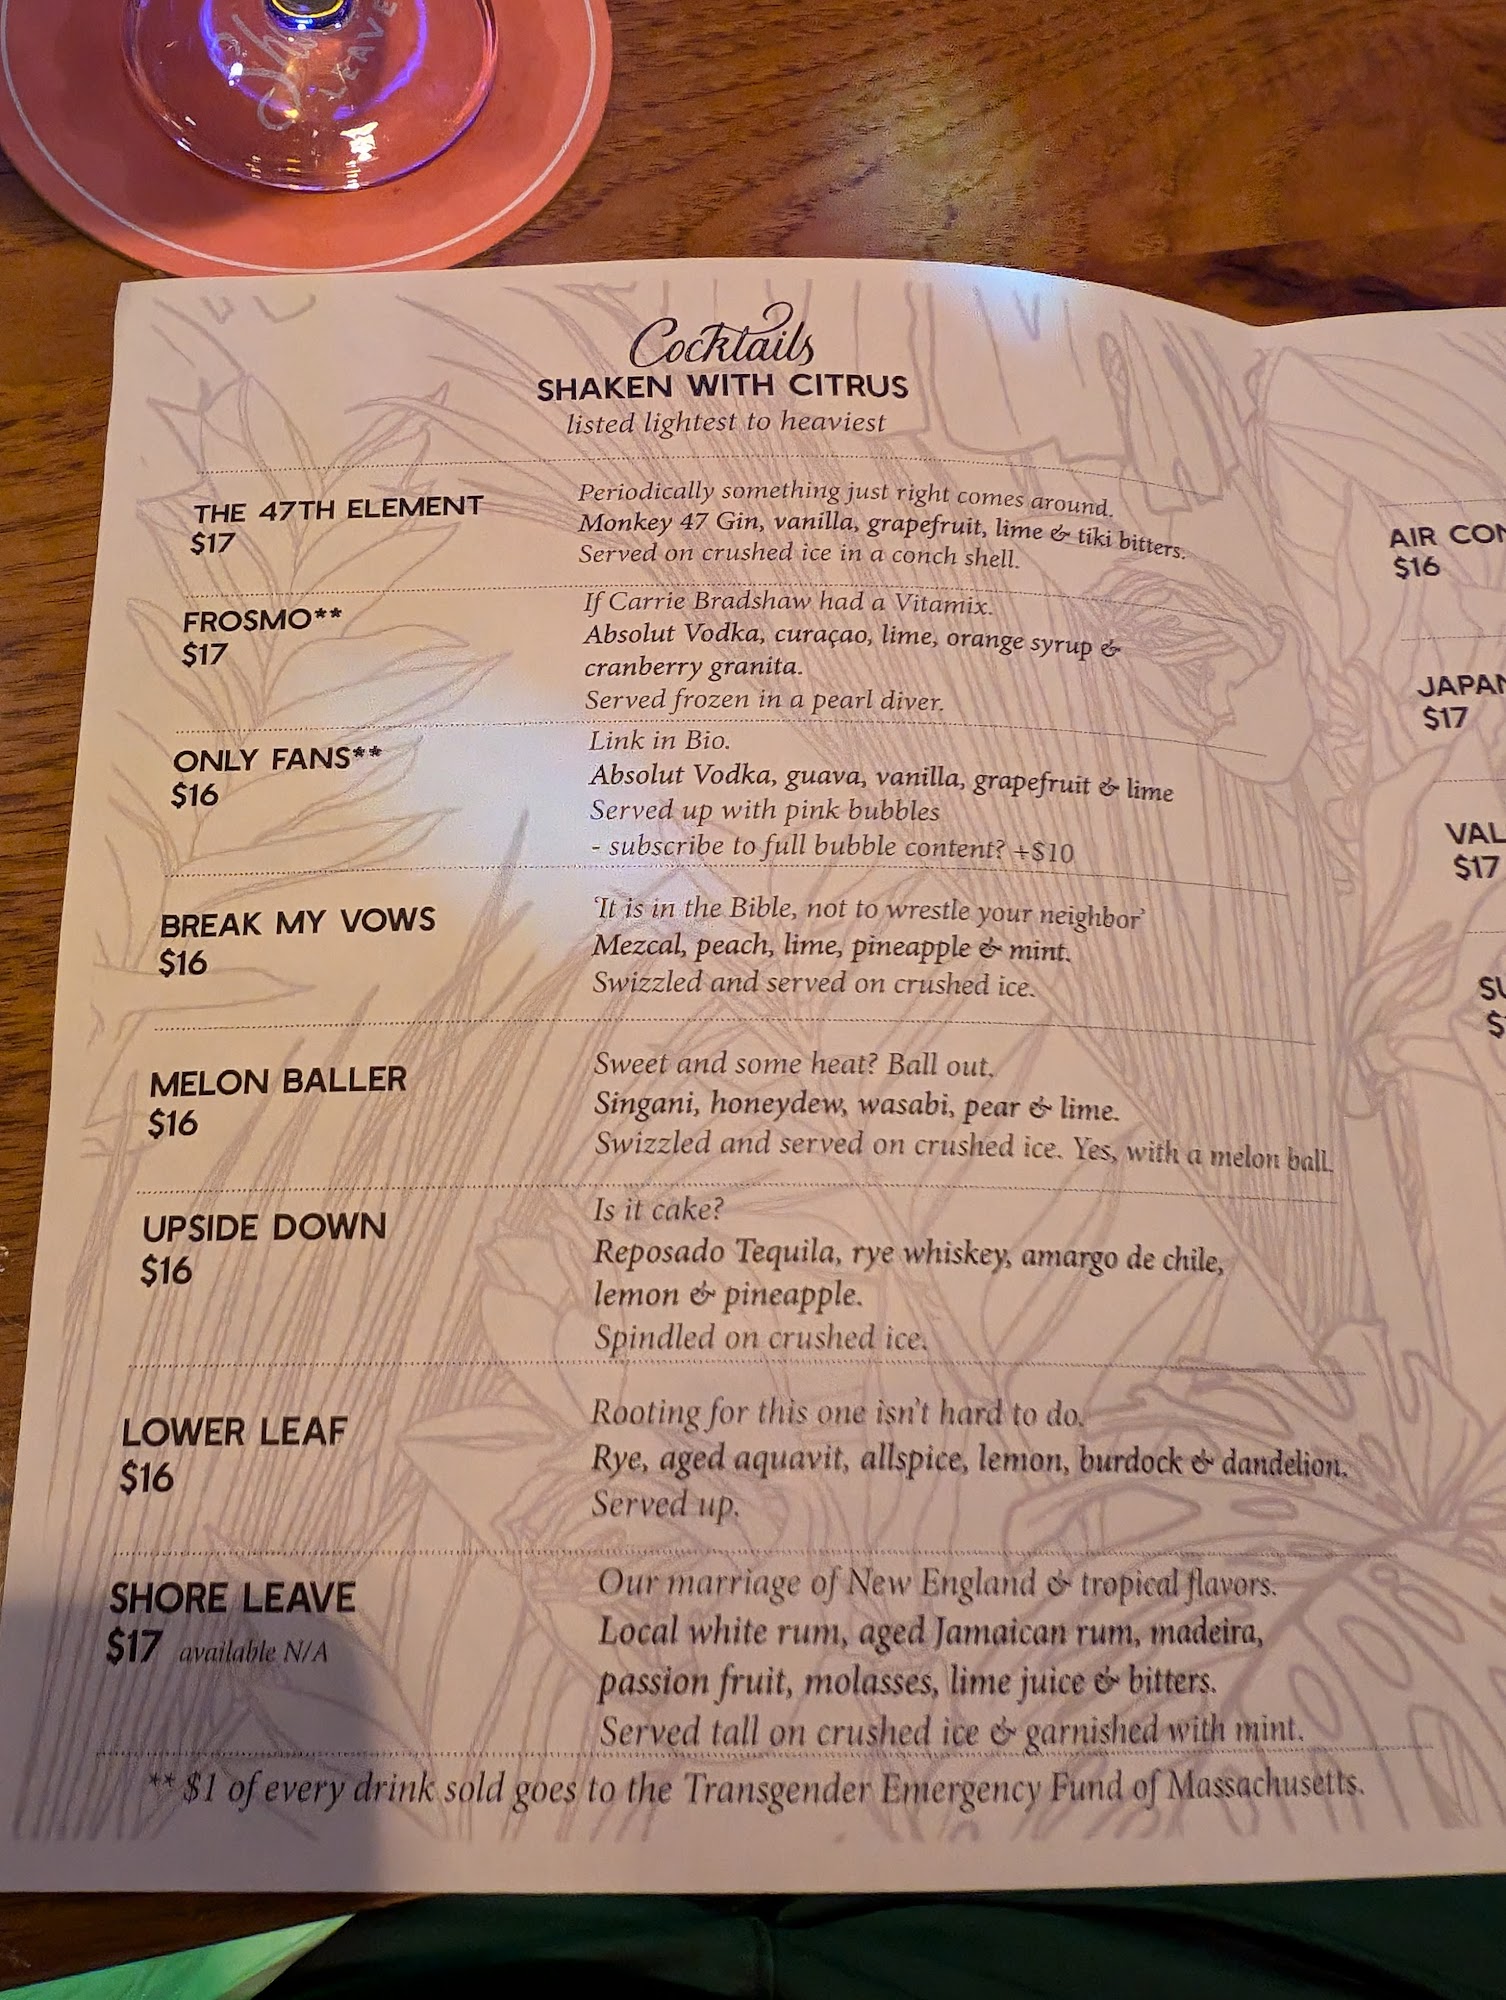 LEAVE
Cocktails
SHAKEN WITH CITRUS
listed lightest to heaviest
THE 47TH ELEMENT
$17
Periodically something just right comes around.
Monkey 47 Gin, vanilla, grapefruit, lime & tiki bitters.
Served on crushed ice in a conch shell.
FROSMO**
$17
If Carrie Bradshaw had a Vitamix.
Absolut Vodka, curaçao, lime, orange syrup &
cranberry granita.
Served frozen in a pearl diver.
ONLY FANS**
$16
Link in Bio.
Absolut Vodka, guava, vanilla, grapefruit & lime
Served up with pink bubbles
- subscribe to full bubble content? +$10
BREAK MY VOWS
$16
'It is in the Bible, not to wrestle your neighbor'
Mezcal, peach, lime, pineapple & mint.
Swizzled and served on crushed ice.
MELON BALLER
$16
Sweet and some heat? Ball out.
Singani, honeydew, wasabi, pear & lime.
Swizzled and served on crushed ice. Yes, with a melon ball.
UPSIDE DOWN
$16
Is it cake?
Reposado Tequila, rye whiskey, amargo de chile,
lemon & pineapple.
Spindled on crushed ice.
LOWER LEAF
$16
Rooting for this one isn't hard to do.
Rye, aged aquavit, allspice, lemon, burdock & dandelion.
Served up.
SHORE LEAVE
$17 available N/A
Our marriage of New England & tropical flavors.
Local white rum, aged Jamaican rum, madeira,
passion fruit, molasses, lime juice & bitters.
Served tall on crushed ice & garnished with mint.
** $1 of every drink sold goes to the Transgender Emergency Fund of Massachusetts.
AIR CON
$16
JAPAN
$17
VAL
$17
SU